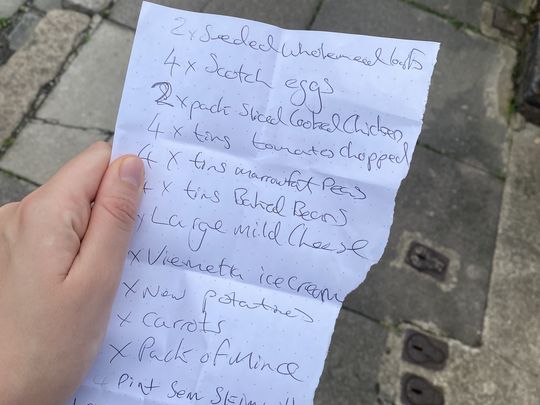 2 x seeded wholemeal
4 x Scotch eggs
2 x pack sliced cooked chicken
4 x tins tomatoes chopped
4 x tins marrowfat Peas
4 x tins Baked Beans
x Large mild cheese
x Viennetta ice cream
x New potatoes
x carrots
x Pack of Mince
4 pint sem skim